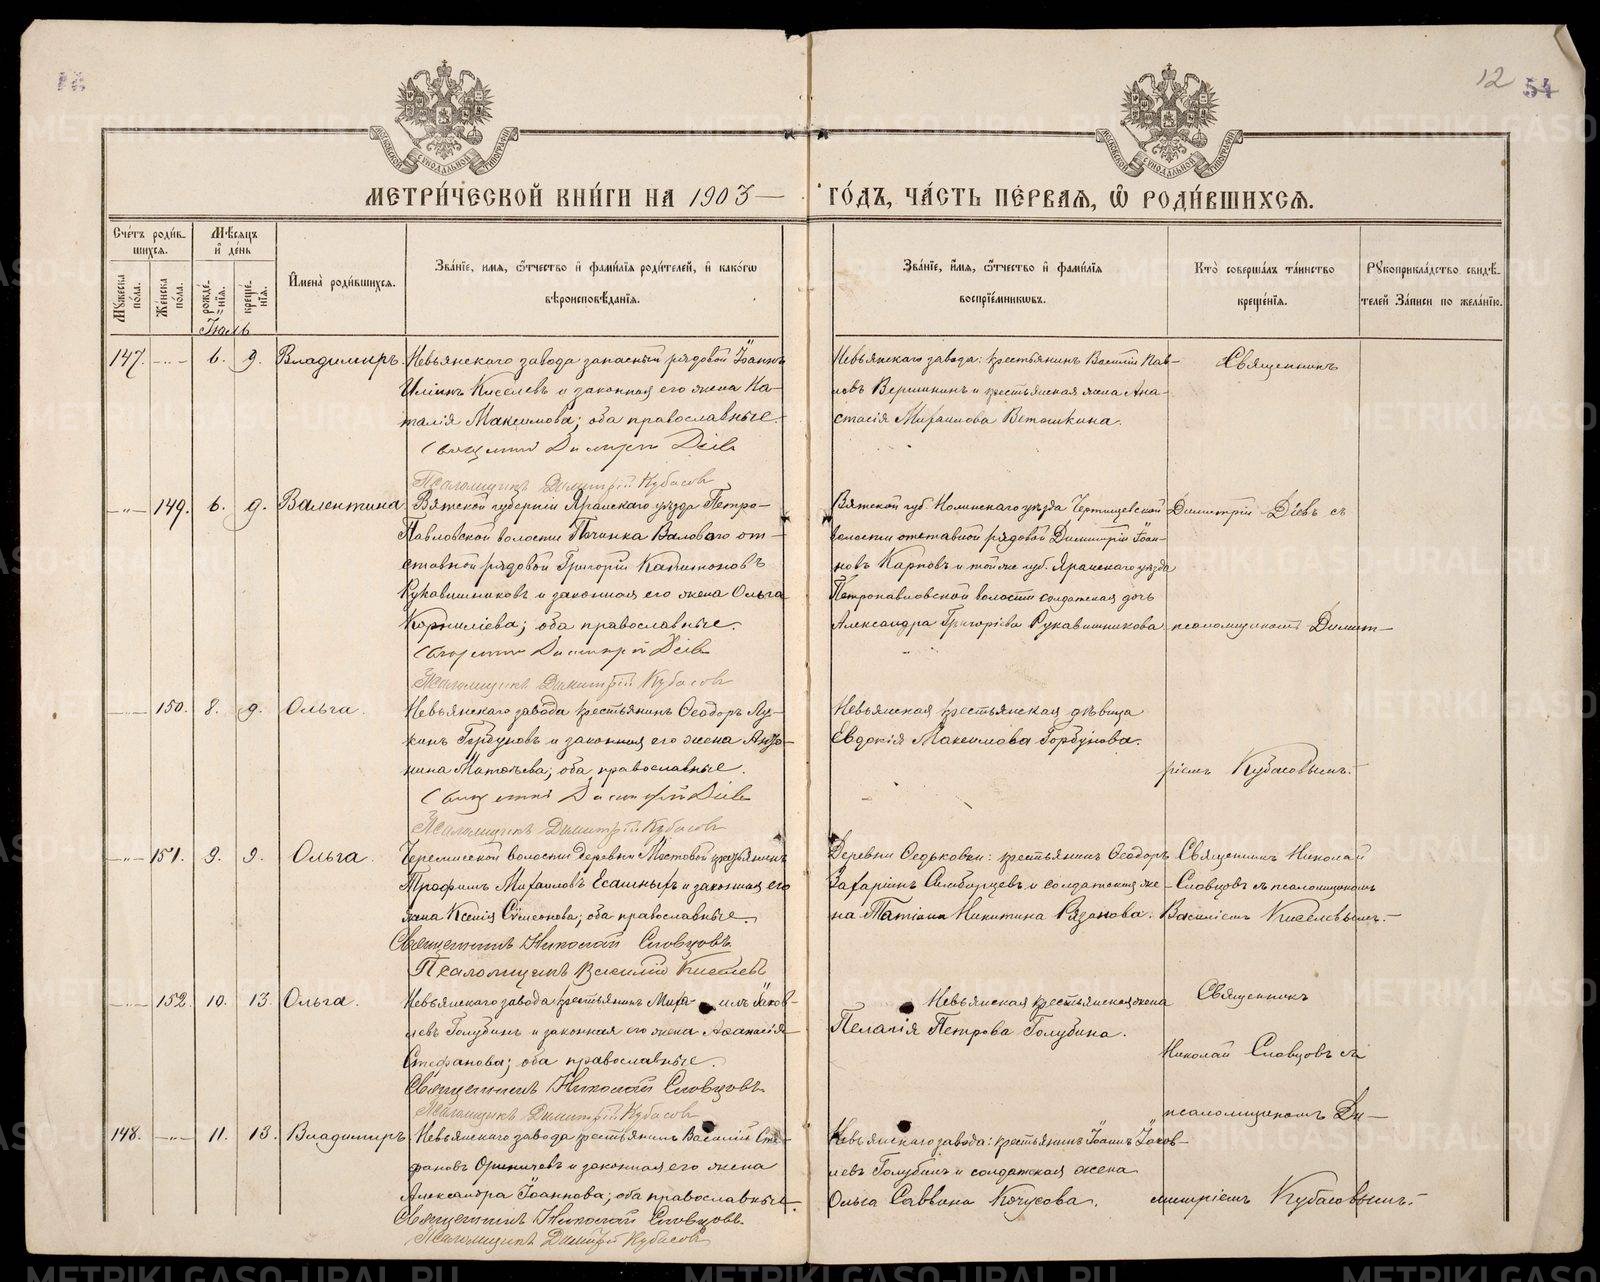 12 54
МЕТРИ́ЧЕСКОЙ КНИ́ГИ НА 1903 ГО́ДЪ, ЧА́СТЬ ПЕ́РВАЯ, Ѡ҆ РОДИ́ВШИХСЯ.
Сче́тъ роди́вшихся.
Мужеска пола.
Же́нска по́ла.
Мѣ́сяцъ и҆ де́нь
рожде́нїя.
креще́нїя.
И҆мена̀ роди́вшихся.
Зва́нїе, имя, ѻ҆́тчество и҆ фами́лїя роди́телей, и҆ како́гѡ вѣроисповѣ́данїя.
Зва́нїе, и҆́мя, ѻ҆́тчество и҆ фами́лїя воспрїе́мникѡвъ.
Кто̀ соверша́лъ та́инство креще́нїя.
Рꙋкоприкла́дство свидѣ́телей За́писи по жела́нїю.
Іюль
147. 6. 9. Владимиръ.
Невьянскаго завода запасный рядовой Іоаннъ
Ильинъ Киселевъ и законная его жена На-
талія Максимова; оба православные.
Священникъ Димитрій Діевъ
Псаломщикъ Димитрій Кубасовъ
Невьянскаго завода: крестьянинъ Василій Пав-
ловъ Вершининъ и крестьянская жена Ана-
стасія Михаилова Ветошкина.
Священникъ
149. 6. 9. Валентина
Вятской губерніи Яранскаго уѣзда Петро-
Павловской волости Починка Валоваго от-
ставной рядовой Григорій Капитоновъ
Рукавишниковъ и законная его жена Ольга
Корниліева; оба православные.
Священникъ Димитрій Діевъ
Псаломщикъ Димитрій Кубасовъ
Вятской губ. Нолинскаго уѣзда
волости отставной рядовой Димитрій Іоан-
новъ Карповъ и той же губ. Яранскаго уѣзда
Петропавловской волости солдатская дочь
Александра Григоріева Рукавишникова
Димитрій Діевъ съ
псаломщикомъ Димит-
150. 8. 9. Ольга.
Невьянскаго завода крестьянинъ Ѳеодоръ Лу-
кинъ Горбуновъ и законная его жена Анто-
нина; оба православные.
Священникъ Димитрій Діевъ
Псаломщикъ Димитрій Кубасовъ
Невьянская крестьянская дѣвица
Евдокія Максимова Горбунова.
ріемъ Кубасовымъ.
151. 9. 9. Ольга.
Черемисской волости деревни Мостовой крестьянинъ
Трофимъ Михаиловъ Есаиныхъ и законная его
жена Ксенія Сумеонова; оба православные.
Священникъ Николай Словцовъ
Псаломщикъ Василій Киселевъ
Деревни Ѳедьковки: крестьянинъ Ѳеодоръ
Захаріинъ и солдатская же-
на Татіана Никитина Рязанова.
Священникъ Николай
Словцовъ съ псаломщикомъ
Василіемъ Киселевымъ.
152. 10. 13. Ольга.
Невьянскаго завода крестьянинъ Миха илъ Іаков-
левъ Голубинъ и законная его жена Аѳанасія
Стефанова; оба православные.
Священникъ Николай Словцовъ
Псаломщикъ Димитрій Кубасовъ
Невьянская крестьянская жена
Пелагія Петрова Голубина.
Священникъ
Николай Словцовъ съ
псаломщикомъ Ди-
148. 11. 13. Владимиръ
Невьянскаго завода крестьянинъ Василій Сте-
фановъ Ориничевъ и законная его жена
Александра Іоаннова; оба православные.
Священникъ Николай Словцовъ
Псаломщикъ Димитрій Кубасовъ
Невьянскаго завода: крестьянинъ Іоаннъ Іаков-
левъ Голубинъ и солдатская жена
Ольга Саввина Качусова.
митріемъ Кубасовымъ.
METRIKI.GASO-URAL.RU